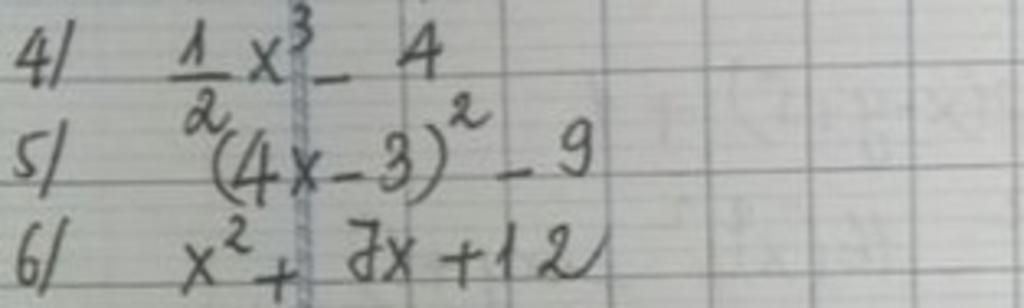 4/ 1/2 x³ - 4
5/ (4x - 3)² - 9
6/ x² + 7x + 12